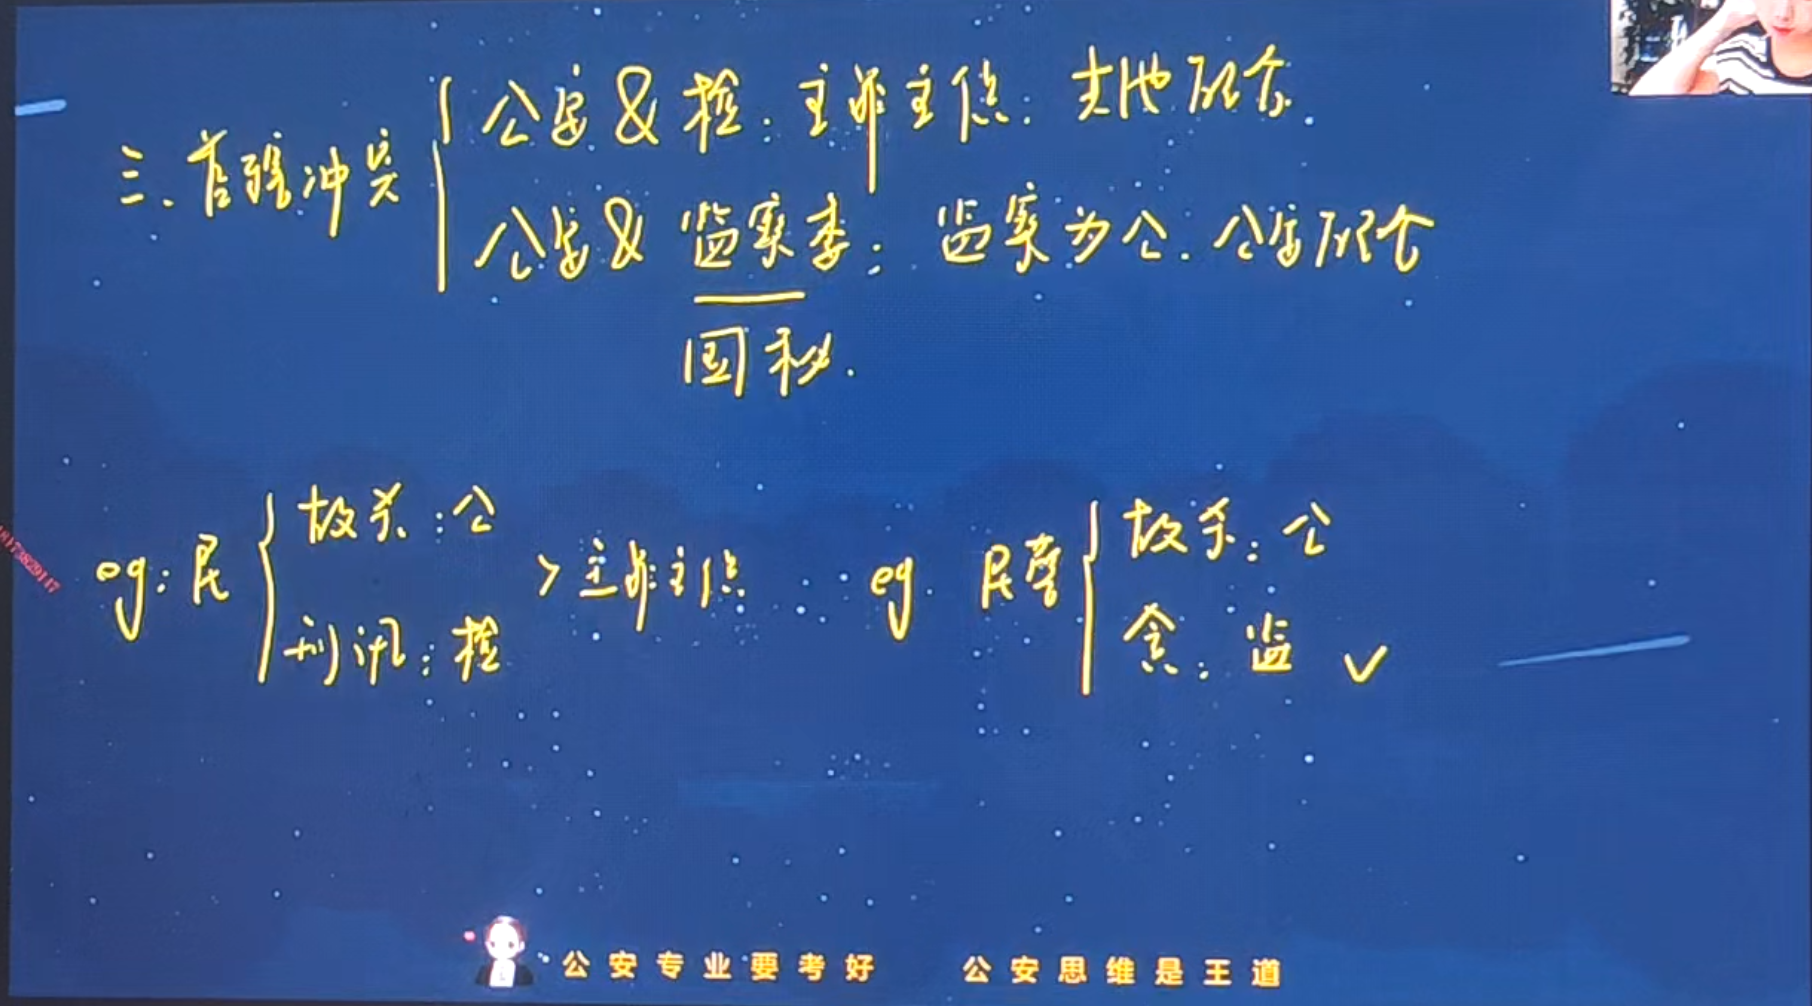 三、管辖冲突
公安&检：主罪主侦；其他配合.
公安&监察委：监察为主.公安配合
国秘.
eg:民
故杀:公
刑讯:检
>主罪主侦
eg.民警
故杀:公
贪:监 ✓
公安专业要考好 公安思维是王道